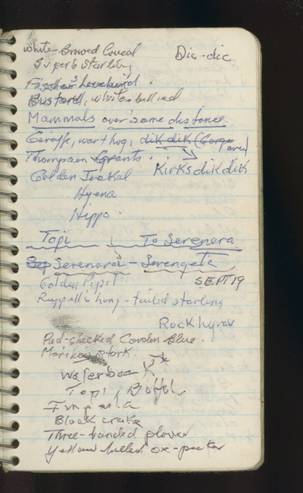 White-browed Coucal
Dic-dic
Superb Starling
Fischer's Lovebird.
Bustard, white-bellied
Mammals over same distance
Giraffe, wart hog, dik dik (
Thompson Grants.
Kirks dik dik
Golden Jackal
Hyena
Hippo
Topi To Serenera
Serenara - Serengeta
SEPT 19
Golden Pipit
Ruppell's long-tailed starling
Rock hyrax
Red-cheeked Cordon Blue.
Maribou stork.
Waterbuck
Topi, Buffalo
Black crake
Three-banded plover
Yellow billed ox-pecker